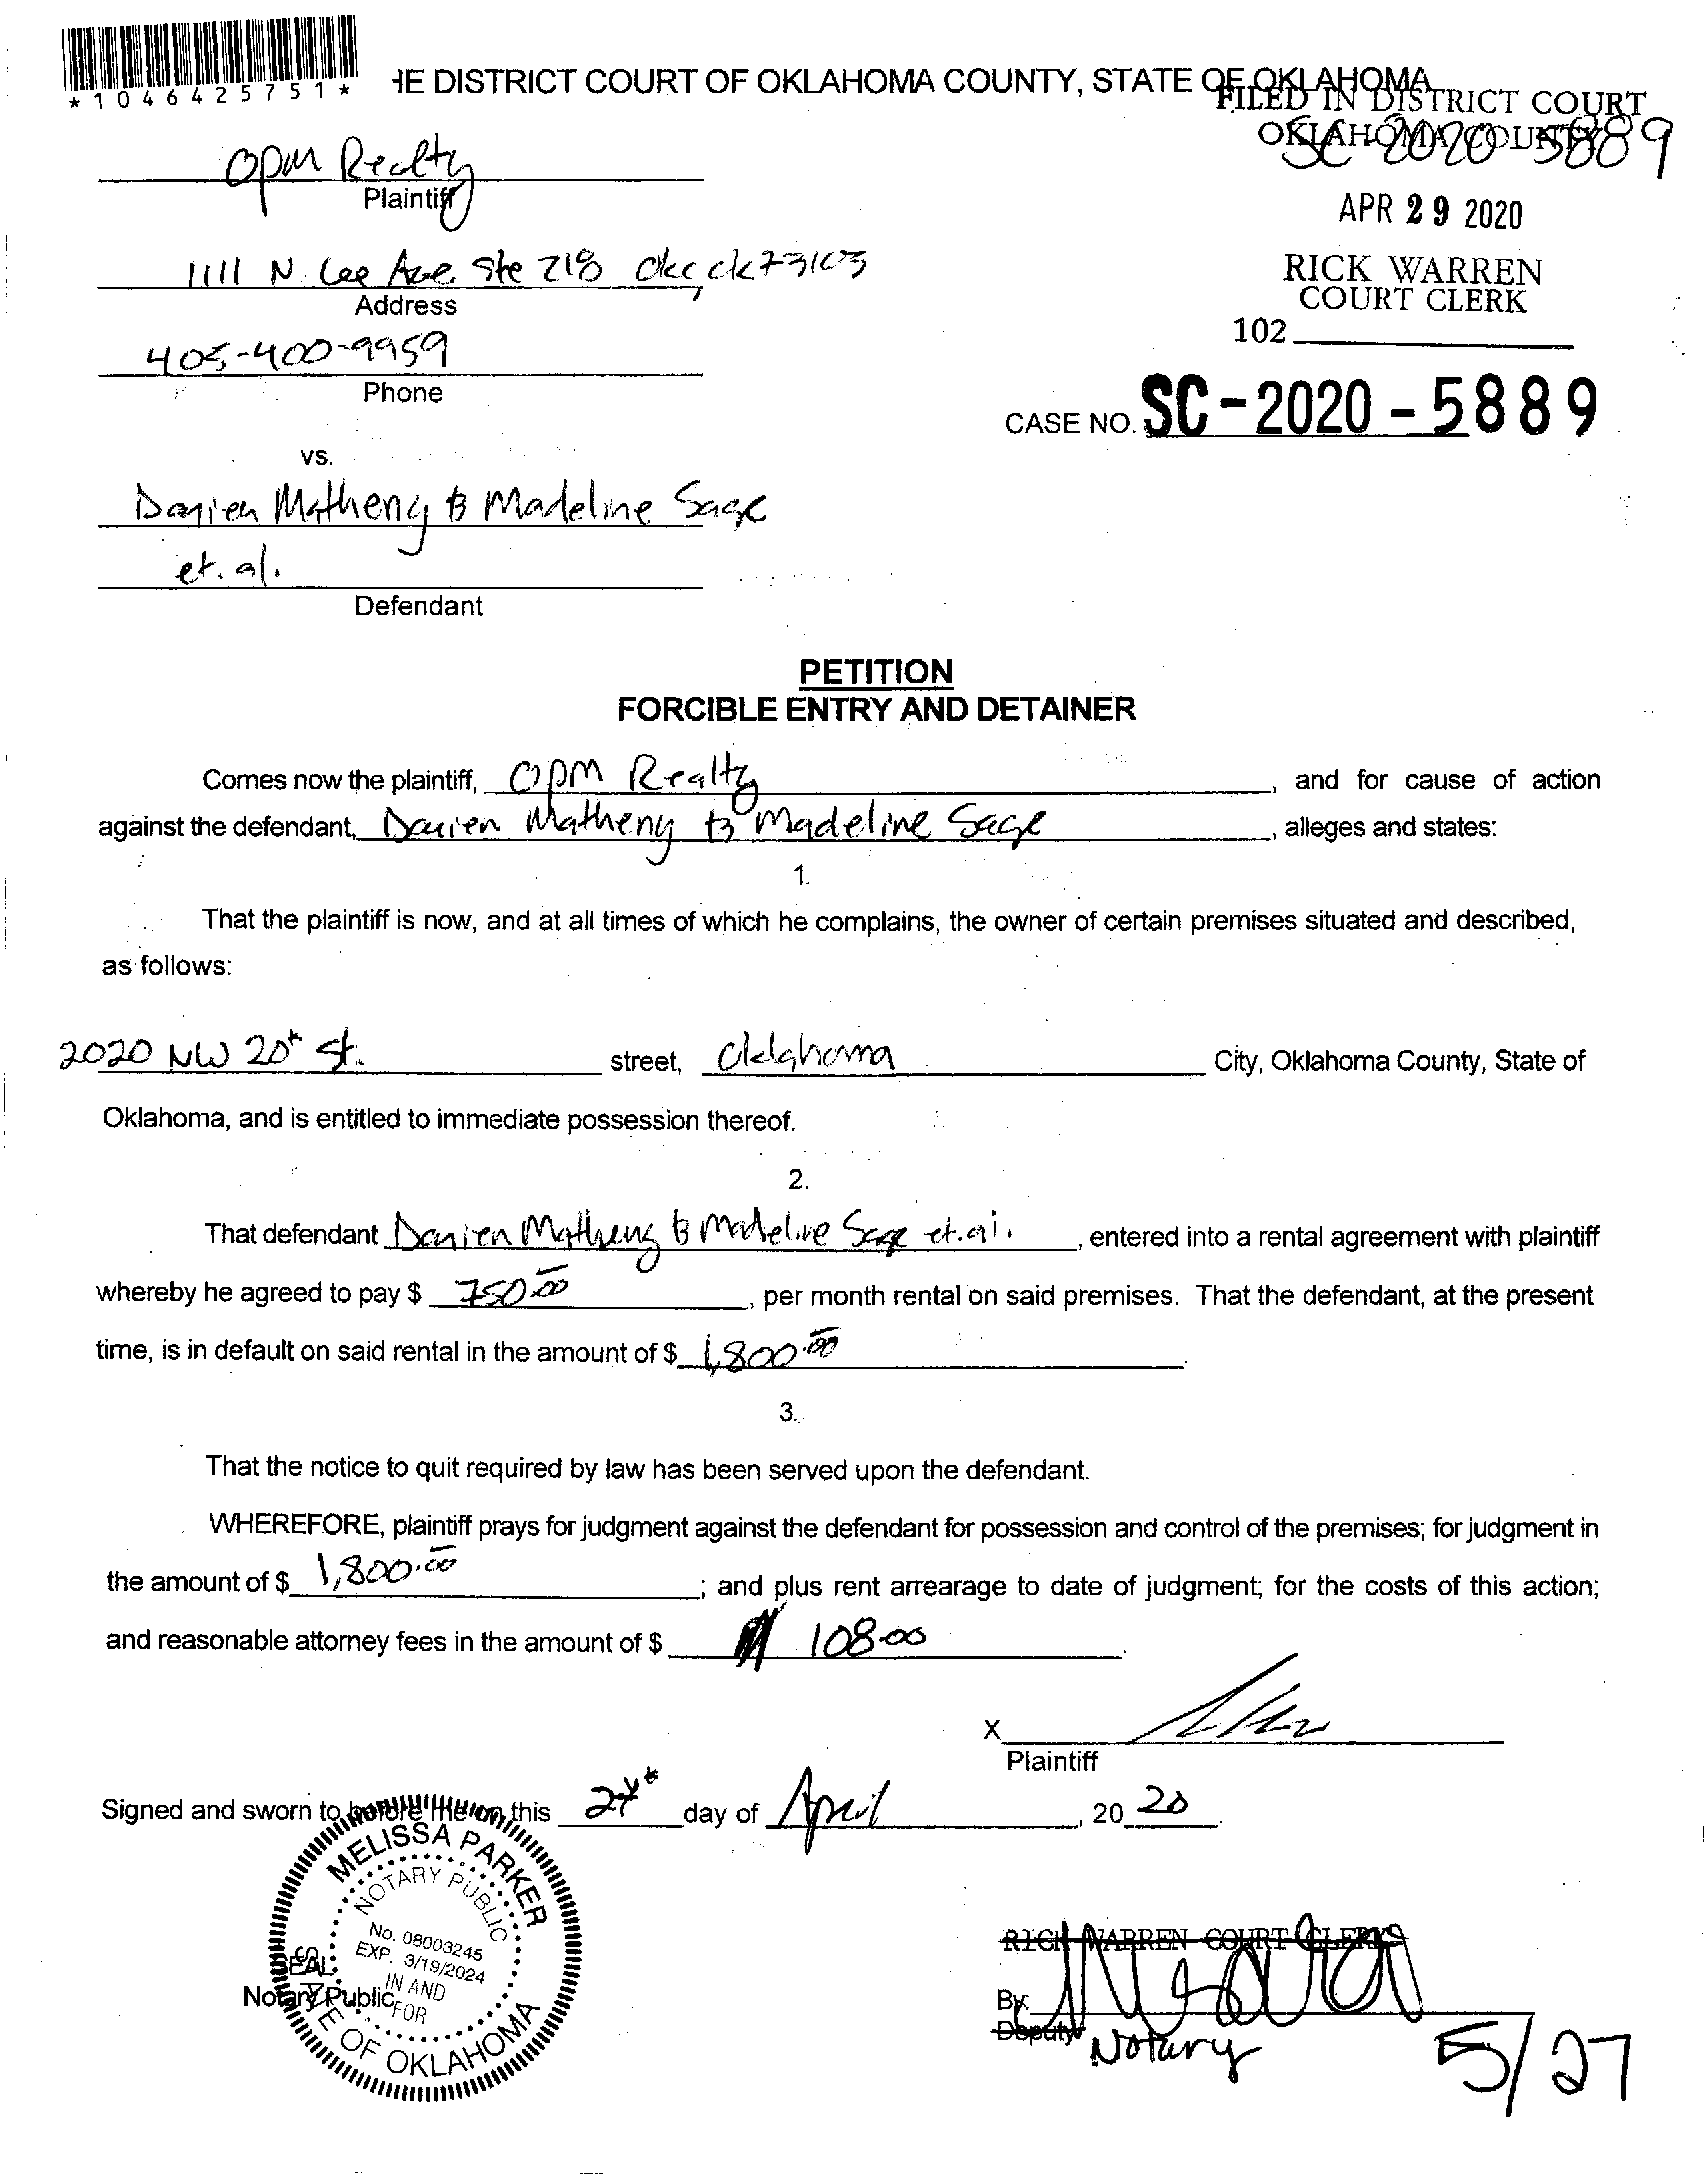 *1046425751*
HE DISTRICT COURT OF OKLAHOMA COUNTY, STATE OF OKLAHOMA
FILED IN DISTRICT COURT
OKLAHOMA COUNTY
SC-2020-5889
OPM Realty
Plaintiff
APR 29 2020
1111 N. Lee Ave. Ste 218 okc, ok 73103
Address
RICK WARREN
COURT CLERK
102
405-400-9959
Phone
CASE NO. SC-2020-5889
vs.
Darien Matheny & Madeline Sage
et. al.
Defendant
PETITION
FORCIBLE ENTRY AND DETAINER
Comes now the plaintiff, OPM Realty, and for cause of action
against the defendant, Darien Matheny & Madeline Sage, alleges and states:
1.
That the plaintiff is now, and at all times of which he complains, the owner of certain premises situated and described,
as follows:
2020 NW 20th St. street, Oklahoma City, Oklahoma County, State of
Oklahoma, and is entitled to immediate possession thereof.
2.
That defendant Darien Matheny & Madeline Sage et. al., entered into a rental agreement with plaintiff
whereby he agreed to pay $ 750.00, per month rental on said premises. That the defendant, at the present
time, is in default on said rental in the amount of $ 1,800.00.
3.
That the notice to quit required by law has been served upon the defendant.
WHEREFORE, plaintiff prays for judgment against the defendant for possession and control of the premises; for judgment in
the amount of $ 1,800.00; and plus rent arrearage to date of judgment; for the costs of this action;
and reasonable attorney fees in the amount of $ 108.00.
X
Plaintiff
Signed and sworn to before me on this day of April, 2020.
MELISSA PARKER
NOTARY PUBLIC
No. 08003245
EXP. 3/19/2024
IN AND
FOR
STATE OF OKLAHOMA
SEAL
Notary Public
RICK WARREN COURT CLERK
By:
Deputy Notary
5/27